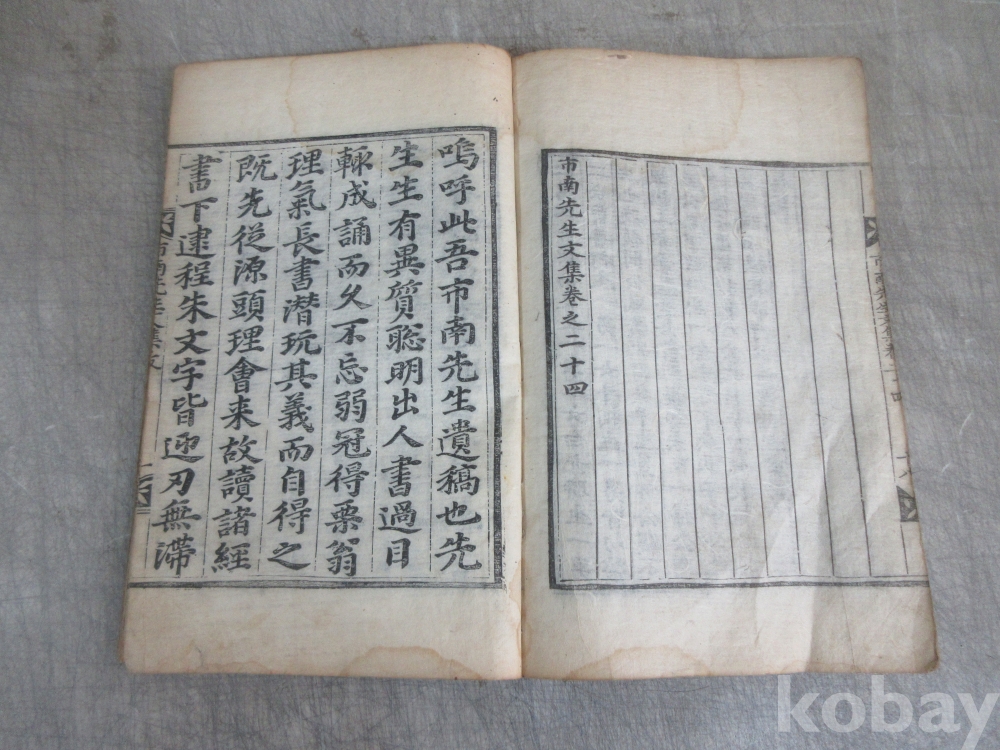 市南先生文集卷之二十四
嗚呼此吾市南先生遺稿也先
生生有異質聡明出人書過目
輙成誦而久不忘弱冠得栗翁
理氣長書潜玩其義而自得之
旣先從源頭理會来故讀諸經
書下逮程朱文字皆迎刃無滯
kobay